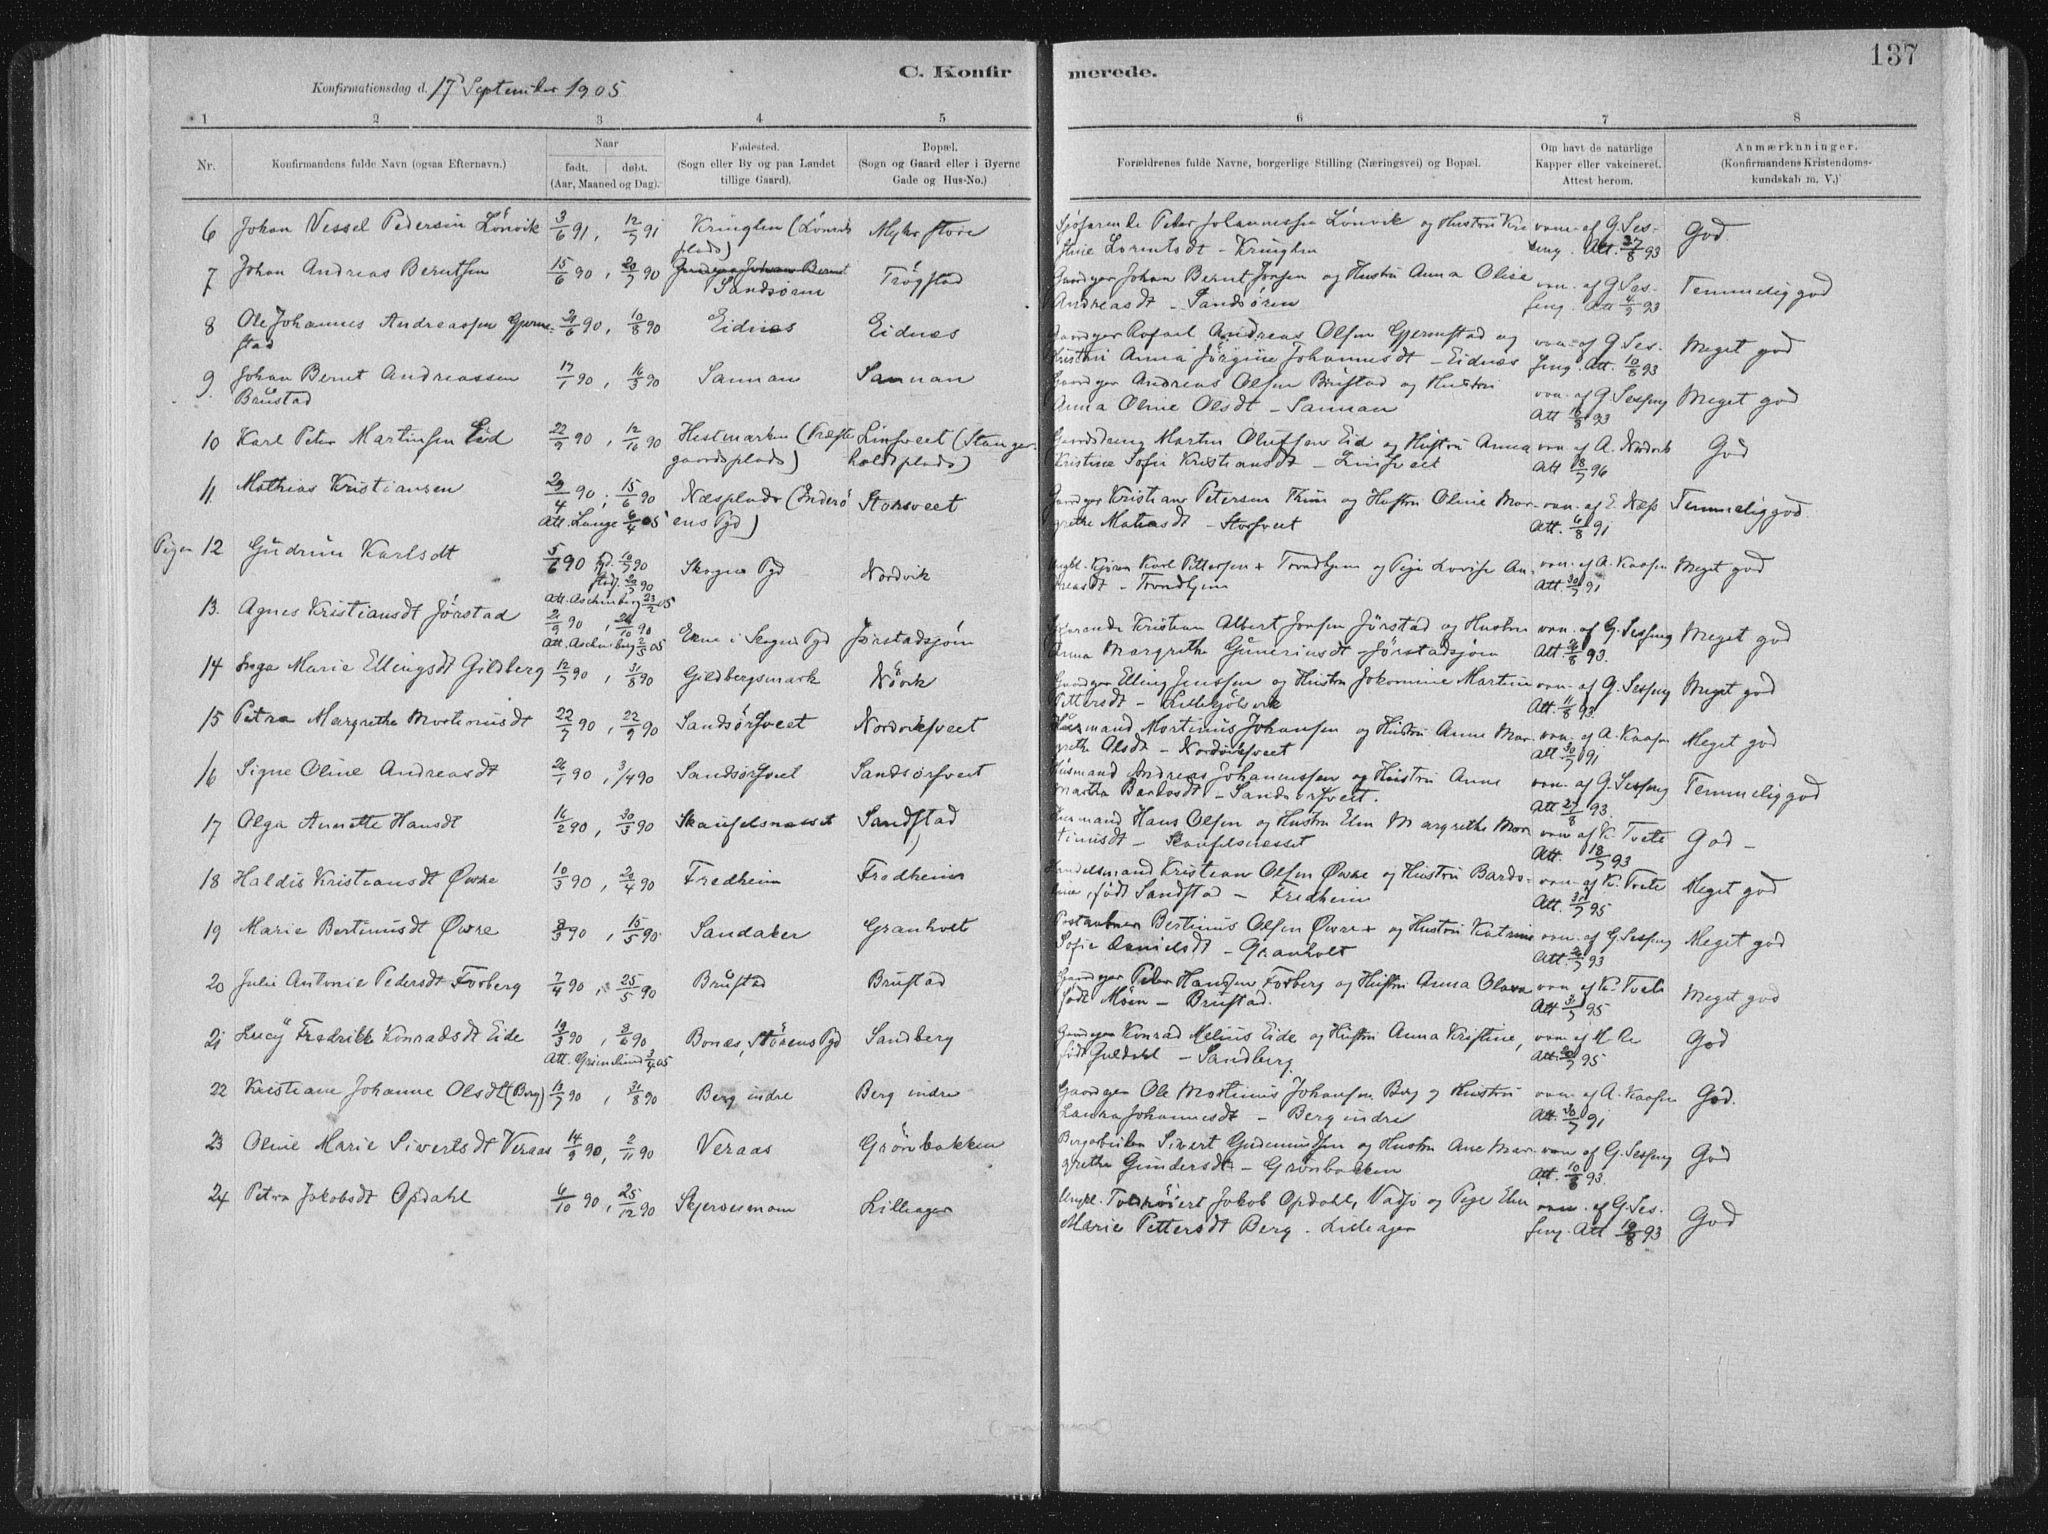 137
C. Konfirmerede.
Konfirmationsdag d. 17 September 1905
1 2 3 4 5 6 7 8
Nr.
Konfirmandens fulde Navn (ogsaa Efternavn.)
Naar
født. døbt.
(Aar, Maaned og Dag).
Fødested.
(Sogn eller By og paa Landet
tillige Gaard).
Bopæl.
(Sogn og Gaard eller i Byerne
Gade og Hus-No.)
Forældrenes fulde Navne, borgerlige Stilling (Næringsvei) og Bopæl.
Om havt de naturlige
Kapper eller vakcineret.
Attest herom.
Anmærkninger.
(Konfirmandens Kristendoms-
kundskab m. V.)
6 Johan Vessel Pedersen Lönvik 3/6 91, 12/7 91 Kringlen (Lönvik
plads)
Sjöfarende Peter Johannessen Lönvik og Hustru Kri
stine Lorentsdt - Kringlen
vacc. af G. Ses-
seng. Att. 27/8 93
God
7 Johan Andreas Berntsen 15/6 90, 20/7 90 Sandsören Trögstad
Gaardger Johan Bernt Jonsen og Hustru Anna Oline
Andreasdt - Sandsören
vac. af G. Ses-
seng. Att 4/9 93
Temmelig god
8 Ole Johannes Andreassen Gjerm-
stad 24/6 90, 10/8 90 Eidnes Eidnes
Gaardger Rofael Andreas Olsen Gjermstad og
Hustru Anna Jörgine Johannesdt - Eidnæs
vac. af G. Ses-
seng. Att. 10/8 93
Meget god
9. Johan Bernt Andreassen
Brustad 17/1 90, 16/3 90 Sannan Sannan
Gaardger Andreas Olsen Brustad og Hustru
Anna Oline Olsdt - Sannan
vac. af G. Sesseng
Att 10/8 93
Meget god
10 Karl Peter Martinsen Eid 22/9 90, 12/10 90 Hestmarken (Præste
gaardsplads) Linsveet (Stanger-
holdtplads)
Gaardsdreng Martin Oluffsen Eid og Hustru Anna
Kristine Sofie Kristiansdt - Linsveet
vac. af A. Nordvik
Att 18/7 96
God
11 Mathias Kristiansen 29/4 90; 15/6 90
Att. Lange 6/4 05 Næsplads (Inderö
ens Pgd) Storsveet
Gaardger Kristian Petersen Thun og Hustru Oline Mar-
grethe Matiasdt - Storsveet
vac. af E. Næss
Att. 6/8 91
Temmelig god
Piger 12 Gudrun Karlsdt 5/6 90 hd. 10/7 90
stadf.
Att. Aschenberg 23/2 05 Skogn Pgd Nordvik
Ungkl. Karl Pettersen + Trondhjem og Pige Lovise An-
dreasdt - Trondhjem
vac. af A. Kaasen
Att. 30/7 91
Meget god
13. Agnes Kristiansdt Jörstad 21/9 90, 26/10 90
Att. Aschenberg 2/3 05 Ekne i Skogn Pgd Jörstadsjöen
Kristian Albert Jonsen Jörstad og Hustru
Anna Margrethe Guneriusdt - Jörstadsjöen
vac. af G. Sesseng
Att. 26/8 93.
Meget god
14 Inga Marie Ellingsdt Gildberg 12/7 90, 31/8 90 Gildbergsmark Nörvk
Gaardger Elling Jenssen og Hustru Jokomine Martine
Pettersdt -
vac. af G. Sesseng
Att. 11/8 93.
Meget god
15 Petra Margrethe Mortinusdt 22/7 90, 22/9 90 Sandsörsveet Nordviksveet
Husmand Mortinus Johansen og Hustru Anne Mar-
grethe Olsdt - Nordviksveet
vac. af A. Kaasen
Att 30/7 91
Meget god
16 Signe Oline Andreasdt 26/1 90, 3/4 90 Sandsörsveet Sandsörsveet
Husmand Andreas Johannessen og Hustru Anne
Martha Bardosdt - Sandsörsveet.
vac. af G. Sesseng
Att 27/8 93.
Temmelig god
17 Olga Annette Hansdt 16/2 90, 30/3 90 Skaufelsnesset Sandstad
Husmand Hans Olsen og Hustru Elen Margrethe Mor
tinusdt - Skaufelsnesset
vac. af K. Tvete
Att. 18/7 93
God -
18 Haldis Kristiansdt Øvre 10/3 90, 20/4 90 Fredheim Fredheim
Handelsmand Kristian Olsen Øvre og Hustru Bardo-
line, födt Sandstad - Fredheim
vac. af K. Tvete
Att. 31/7 95
Meget god
19 Marie Bertinusdt Øvre 8/3 90, 15/5 90 Sandaker Granholt
Postaabner Bertinus Olsen Øvre + og Hustru Katrine
Sofie Danielsdt - Granholt
vac. af G. Sesseng
Att. 26/7 93
Meget god
20 Julie Antonie Pedersdt Forberg 7/4 90, 25/5 90 Brustad Brustad
Gaardger Peter Hansen Forberg og Hustru Anna Olava
födt Moen - Brustad.
vac. af K. Tvete
Att 31/7 95
Meget god
21 Lucy Fredrikke Konradsdt Eide 19/3 90, 8/6 90
Att. Grönlund 3/4 05 Bonæs, Störens Pgd Sandberg
Gaardger Konrad Melius Eide og Hustru Anna Kristine,
födt Guldahl - Sandberg.
vac. af M. Re
Att. 20/7 95
God
22 Kristiane Johanne Olsdt (Berg) 13/7 90, 31/8 90 Berg indre Berg indre
Gaardger Ole Mortinus Johansen Berg og Hustru
Laura Johannesdt - Berg indre
vac. af A. Kaasen
Att. 30/7 91
God.
23 Oline Marie Sivertsdt Veraas 14/9 90, 2/11 90 Veraas Grönbakken
Bergarbeider Sivert Gudmundsen og Hustru Ane Mar-
grethe Gundersdt - Grönbakken
vac. af G. Sesseng
Att. 10/8 93.
God
24 Petra Jakobsdt Opdahl 6/10 90, 25/12 90 Skjervesmoen Lilleager
Ungkl. Toldroiert Jakob Opdahl, Vadsö og Pige Elen
Marie Pettersdt Berg. Lilleager
vac. af G. Ses-
seng. Att 19/8 93
God